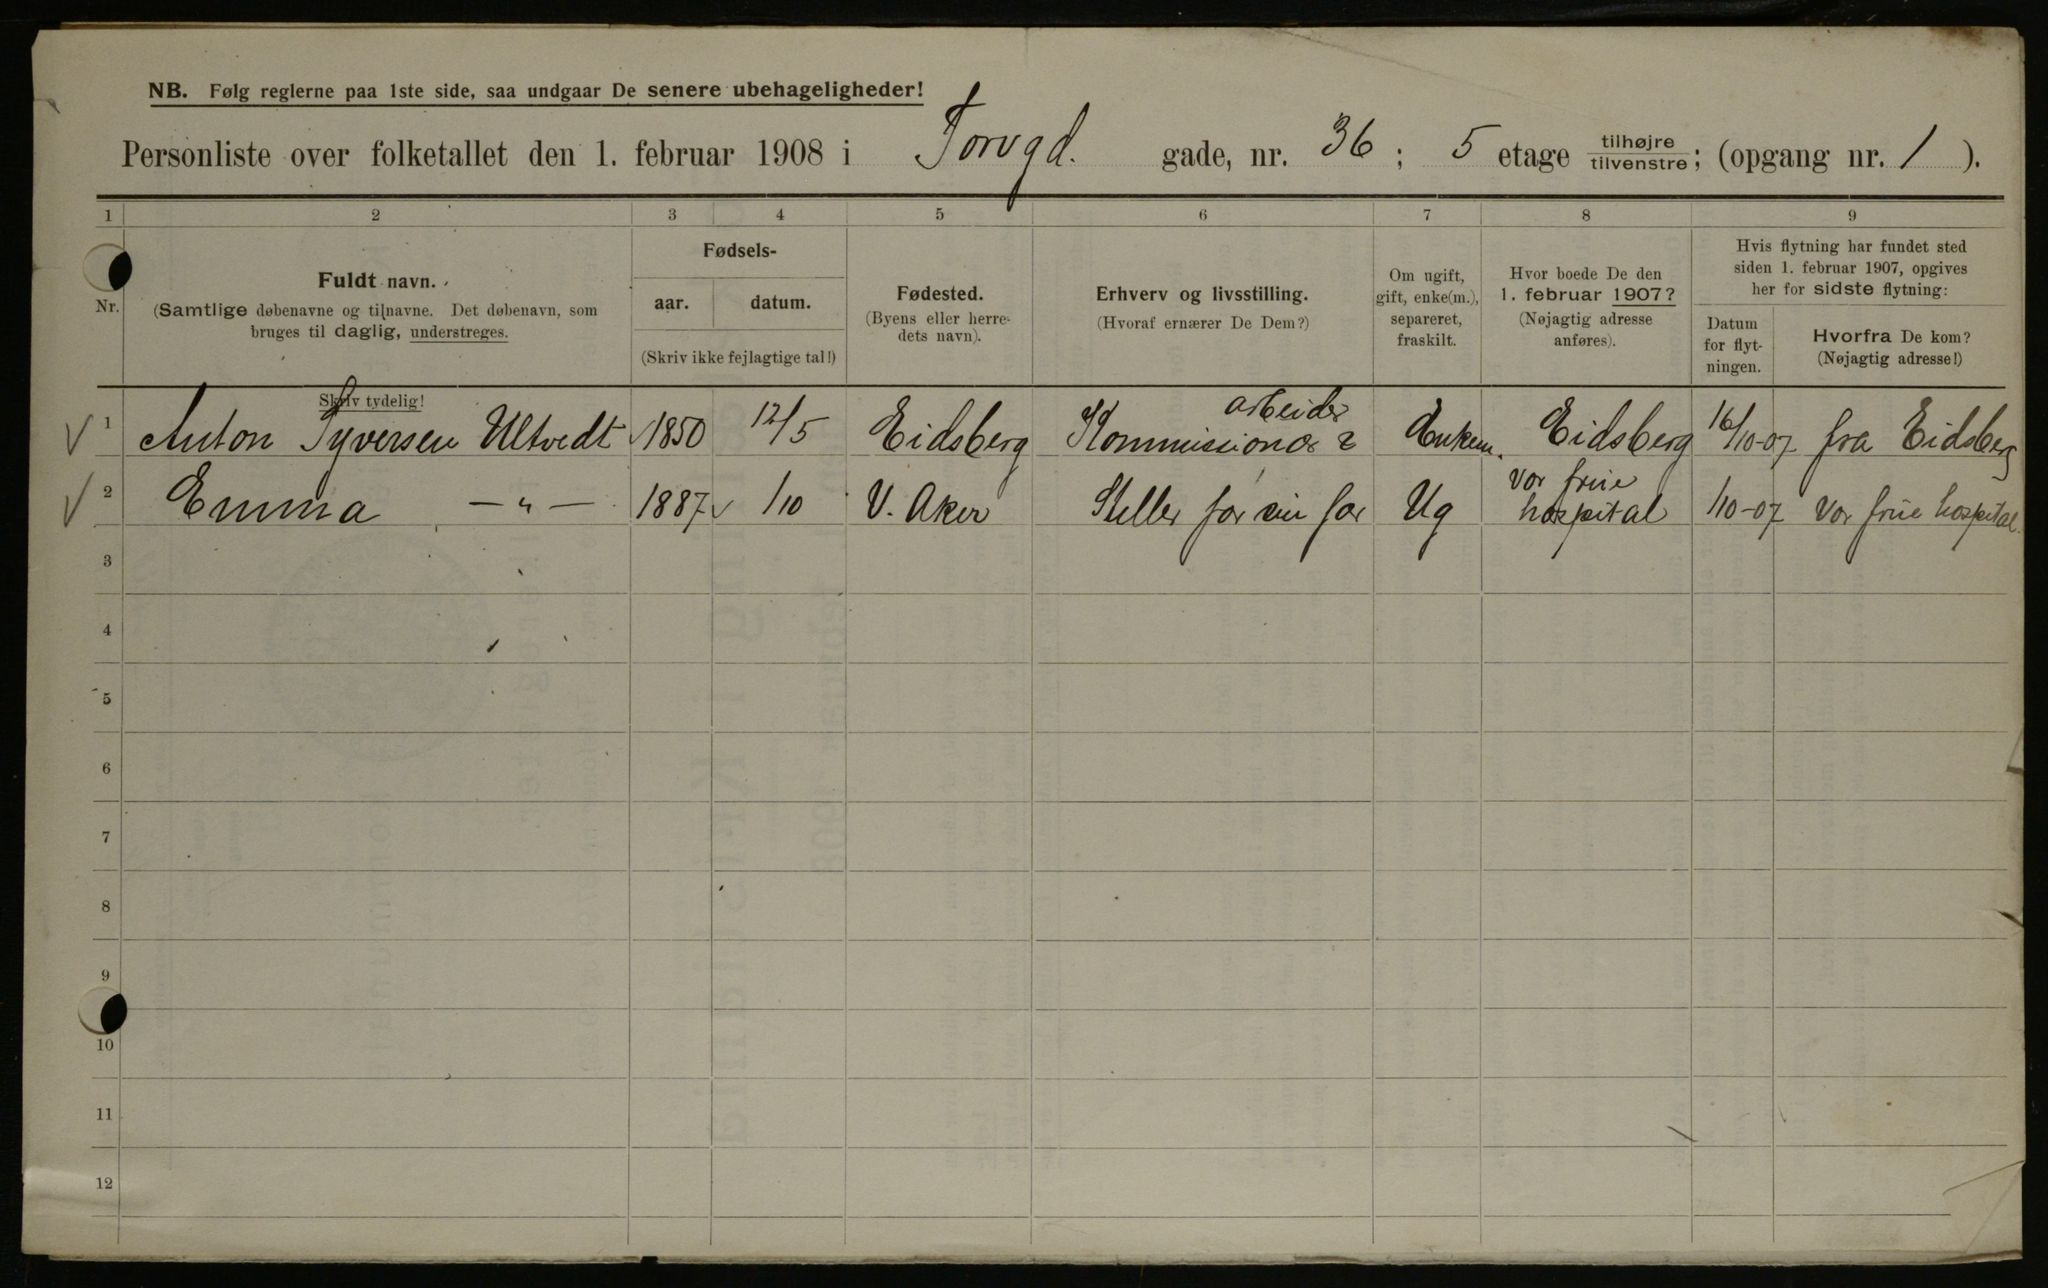 NB. Følg reglerne paa 1ste side, saa undgaar De senere ubehageligheder!
Personliste over folketallet den 1. februar 1908 i Torvgd. gade, nr. 36; 5 etage tilhøjre tilvenstre; (opgang nr. 1).
1 2 3 4 5 6 7 8 9
Nr.
Fuldt navn.
(Samtlige døbenavne og tilnavne. Det døbenavn, som
bruges til daglig, understreges.
Skriv tydelig!
Fødsels-
aar. datum.
(Skriv ikke fejlagtige tal!)
Fødested.
(Byens eller herre-
dets navn).
Erhverv og livsstilling.
(Hvoraf ernærer De Dem?)
Om ugift,
gift, enke(m.),
separeret,
fraskilt.
Hvor boede De den
1. februar 1907?
(Nøjagtig adresse
anføres).
Hvis flytning har fundet sted
siden 1. februar 1907, opgives
her for sidste flytning:
Datum
for flyt-
ningen.
Hvorfra De kom?
(Nøjagtig adresse!)
arbeider
1 Anton Syversen Ultvedt 1850 12/5 Eidsberg Kommissionær Enkem. Eidsberg 16/10-07 fra Eidsberg
Vor frue
2 Emma —„— 1887 /10 V. Aker Steller for sin far Ug hospital /10-07 Vor frue hospital.
3
4
5
6
7
8
9
10
11
12